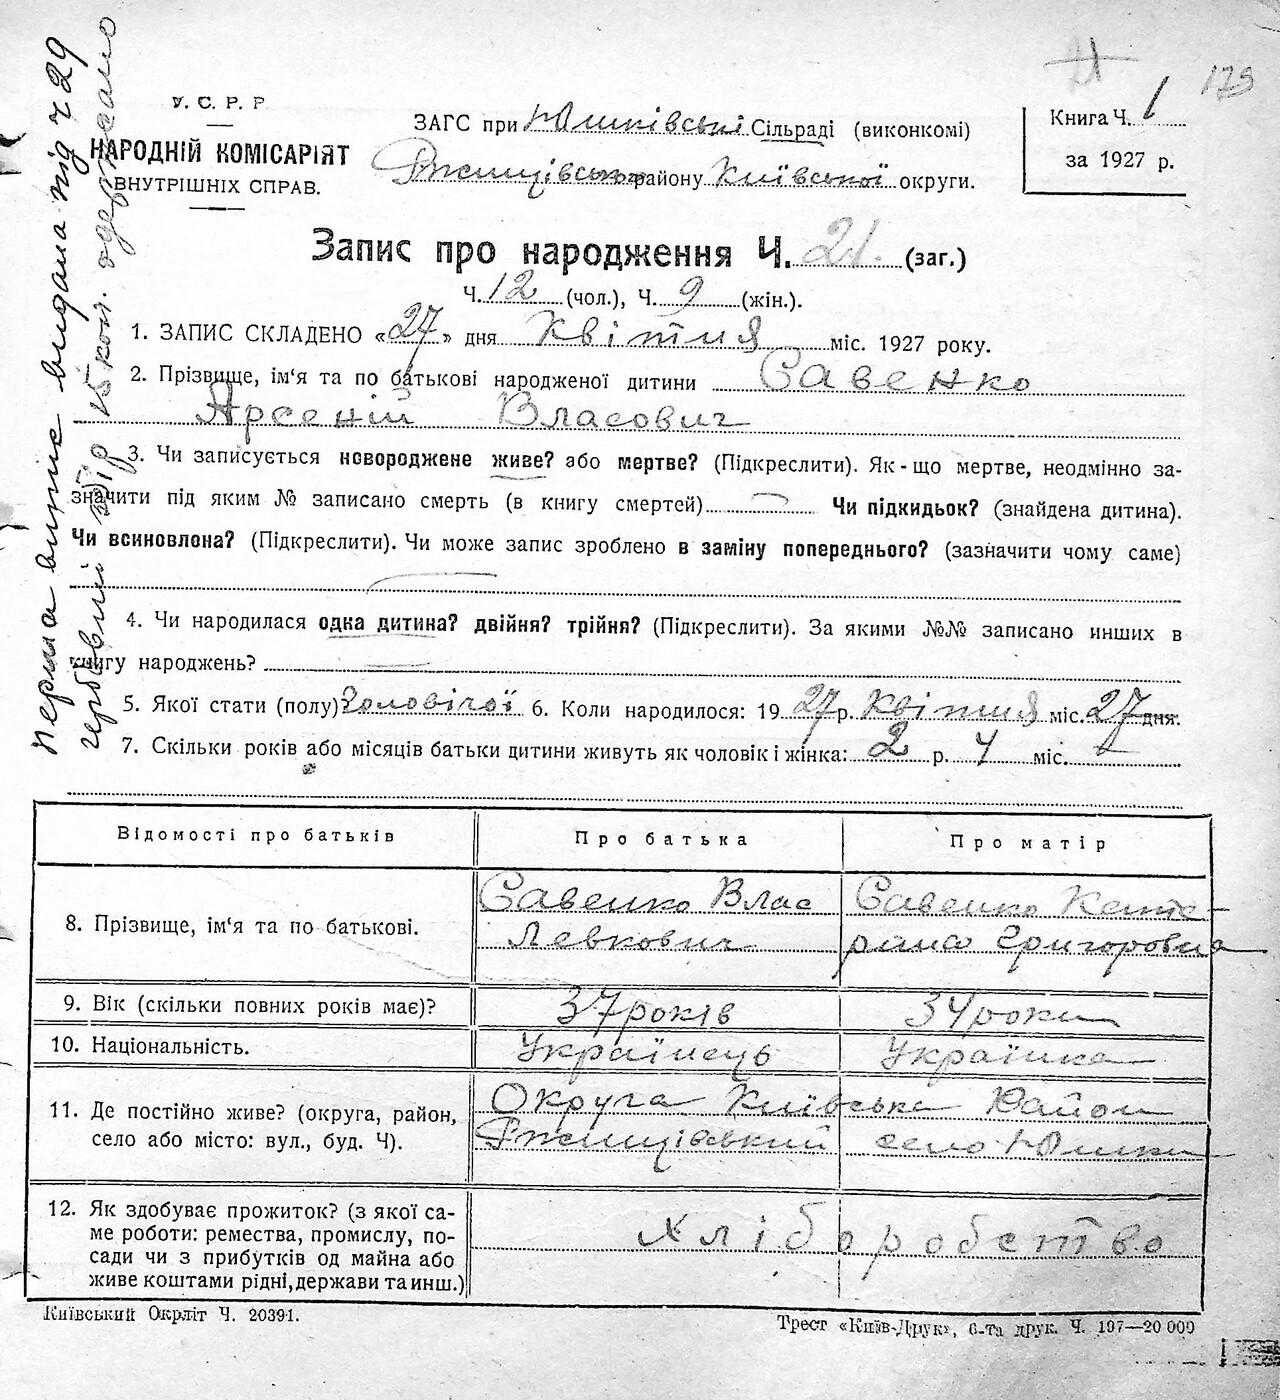 173
У. С. Р. Р.
НАРОДНІЙ КОМІСАРІЯТ
ВНУТРІШНІХ СПРАВ.
ЗАГС при Юшківські Сільраді (виконкомі)
Ржищівсько району Київської округи.
Книга Ч. 1
за 1927 р.
Запис про народження Ч. 21. (заг.)
Ч. 12 (чол.), Ч. 9 (жін.).
1. ЗАПИС СКЛАДЕНО «27» дня Квітня міс. 1927 року.
2. Прізвище, ім'я та по батькові народженої дитини Савенко
Арсеній Власович
3. Чи записується новороджене живе? або мертве? (Підкреслити). Як-що мертве, неодмінно за-
значити під яким № записано смерть (в книгу смертей) — Чи підкидьок? (знайдена дитина).
Чи всиновлона? (Підкреслити). Чи може запис зроблено в заміну попереднього? (зазначити чому саме)
—
4. Чи народилася одна дитина? двійня? трійня? (Підкреслити). За якими №№ записано инших в
книгу народжень? —
5. Якої стати (полу) Чоловічої 6. Коли народилося: 19 27 р. Квітня міс. 27 дня.
7. Скільки років або місяців батьки дитини живуть як чоловік і жінка: 2 р. 4 міс. —
Відомості про батьків
Про батька
Про матір
8. Прізвище, ім'я та по батькові.
Савенко Влас
Левкович
Савенко Кате-
рина Григоровна
9. Вік (скільки повних років має)?
37 років
34 роки
10. Національність.
Українець
Українка
11. Де постійно живе? (округа, район,
село або місто: вул., буд. Ч).
Округа Київська Район
Ржищівський село Юшки
12. Як здобуває прожиток? (з якої са-
ме роботи: ремества, промислу, по-
сади чи з прибутків од майна або
живе коштами рідні, держави та инш.)
Хліборобство
Київський Окрліт Ч. 20391.
Трест «Київ-Друк», 6-та друк. Ч. 197—20 000
Перша випис видана під ч 29
гербовий збір 15 коп. одержано